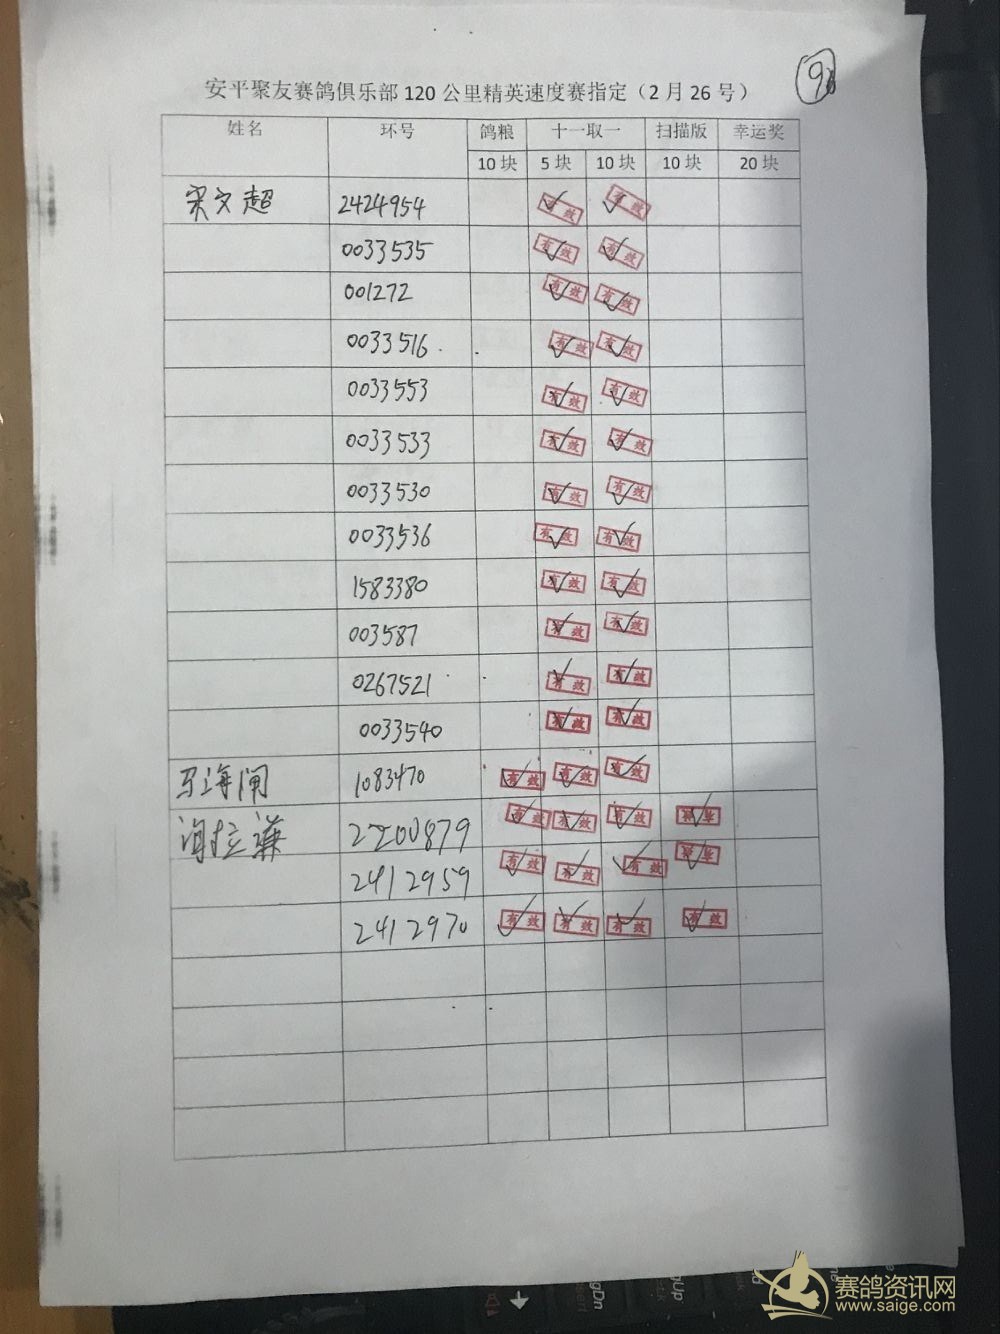 安平聚友赛鸽俱乐部 120 公里精英速度赛指定（2 月 26 号）
姓名 环号 鸽粮 十一取一 扫描版 幸运奖
10 块 5 块 10 块 10 块 20 块
宋文超 2424954 有效 有效
0033535 有效 有效
001272 有效 有效
0033516 有效 有效
0033553 有效 有效
0033533 有效 有效
0033530 有效 有效
0033536 有效 有效
1583380 有效 有效
003587 有效 有效
0267521 有效 有效
0033540 有效 有效
马海闸 1083470 有效 有效 有效
2200879 有效 有效 有效
2412959 有效 有效 有效
2412970 有效 有效 有效 有效
PgDn
PgUp
End
赛鸽资讯网
www.saige.com